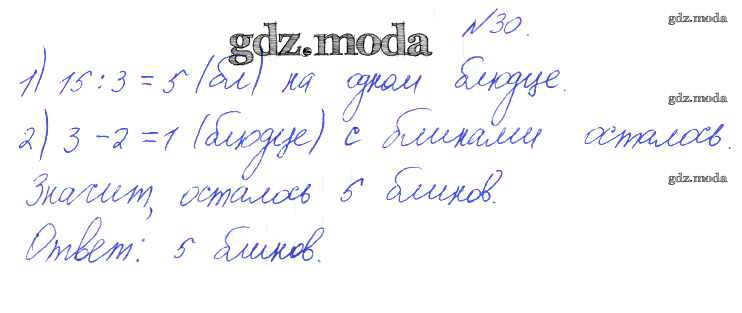 №30.
gdz.moda
gdz.moda
1) 15:3=5 (бл) на одном блюдце.
gdz.moda
2) 3-2=1 (блюдце) с блинами осталось.
Значит, осталось 5 блинов.
gdz.moda
Ответ: 5 блинов.